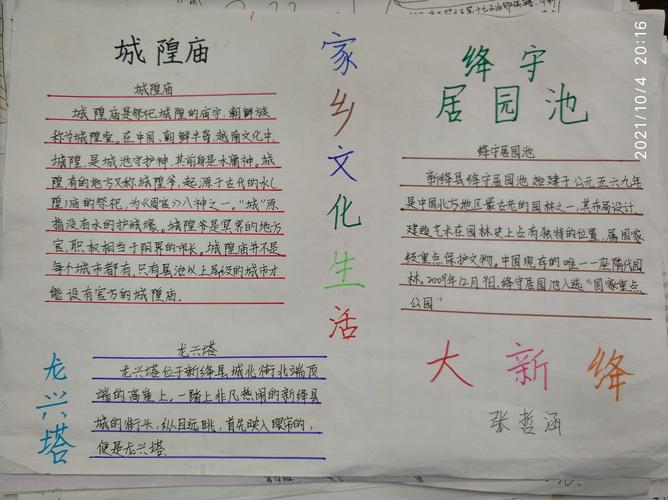 城隍庙
城隍庙
城隍庙是祭祀城隍的庙宇,朝鲜族
称为城隍堂。在中国、朝鲜半岛、越南文化中,
城隍是城池守护神,其前身是水庸神。城
隍有的地方又称城隍爷,起源于古代的水(
隍)庸的祭祀,为《周宫》八神之一。"城"原
指没有水的护城壕。城隍爷是冥界的地方
官,职权相当于阳界的市长。城隍庙并不是
每个城市都有,只有县治以上层级的城市才
能设有官方的城隍庙.
龙兴塔
龙兴塔
龙兴塔位于新绛县城北街北端顶
端的高崖上,一踏上非凡热闹的新绛县
城的街头,纵目远眺,首先映入眼帘的,
便是龙兴塔.
家乡文化生活
绛守
居园池
绛守居园池
新绛县绛守居园池,始建于公元五六九年
是中国北方地区最古老的园林之一,其布局设计
建造艺术在园林史上占有独特的位置,属国家
级重点保护文物。中国现存的唯一一座隋代园
林。2009年12月初,绛守居园池入选"国家重点
公园"
大新绛
张哲涵
2021/10/4 20:16